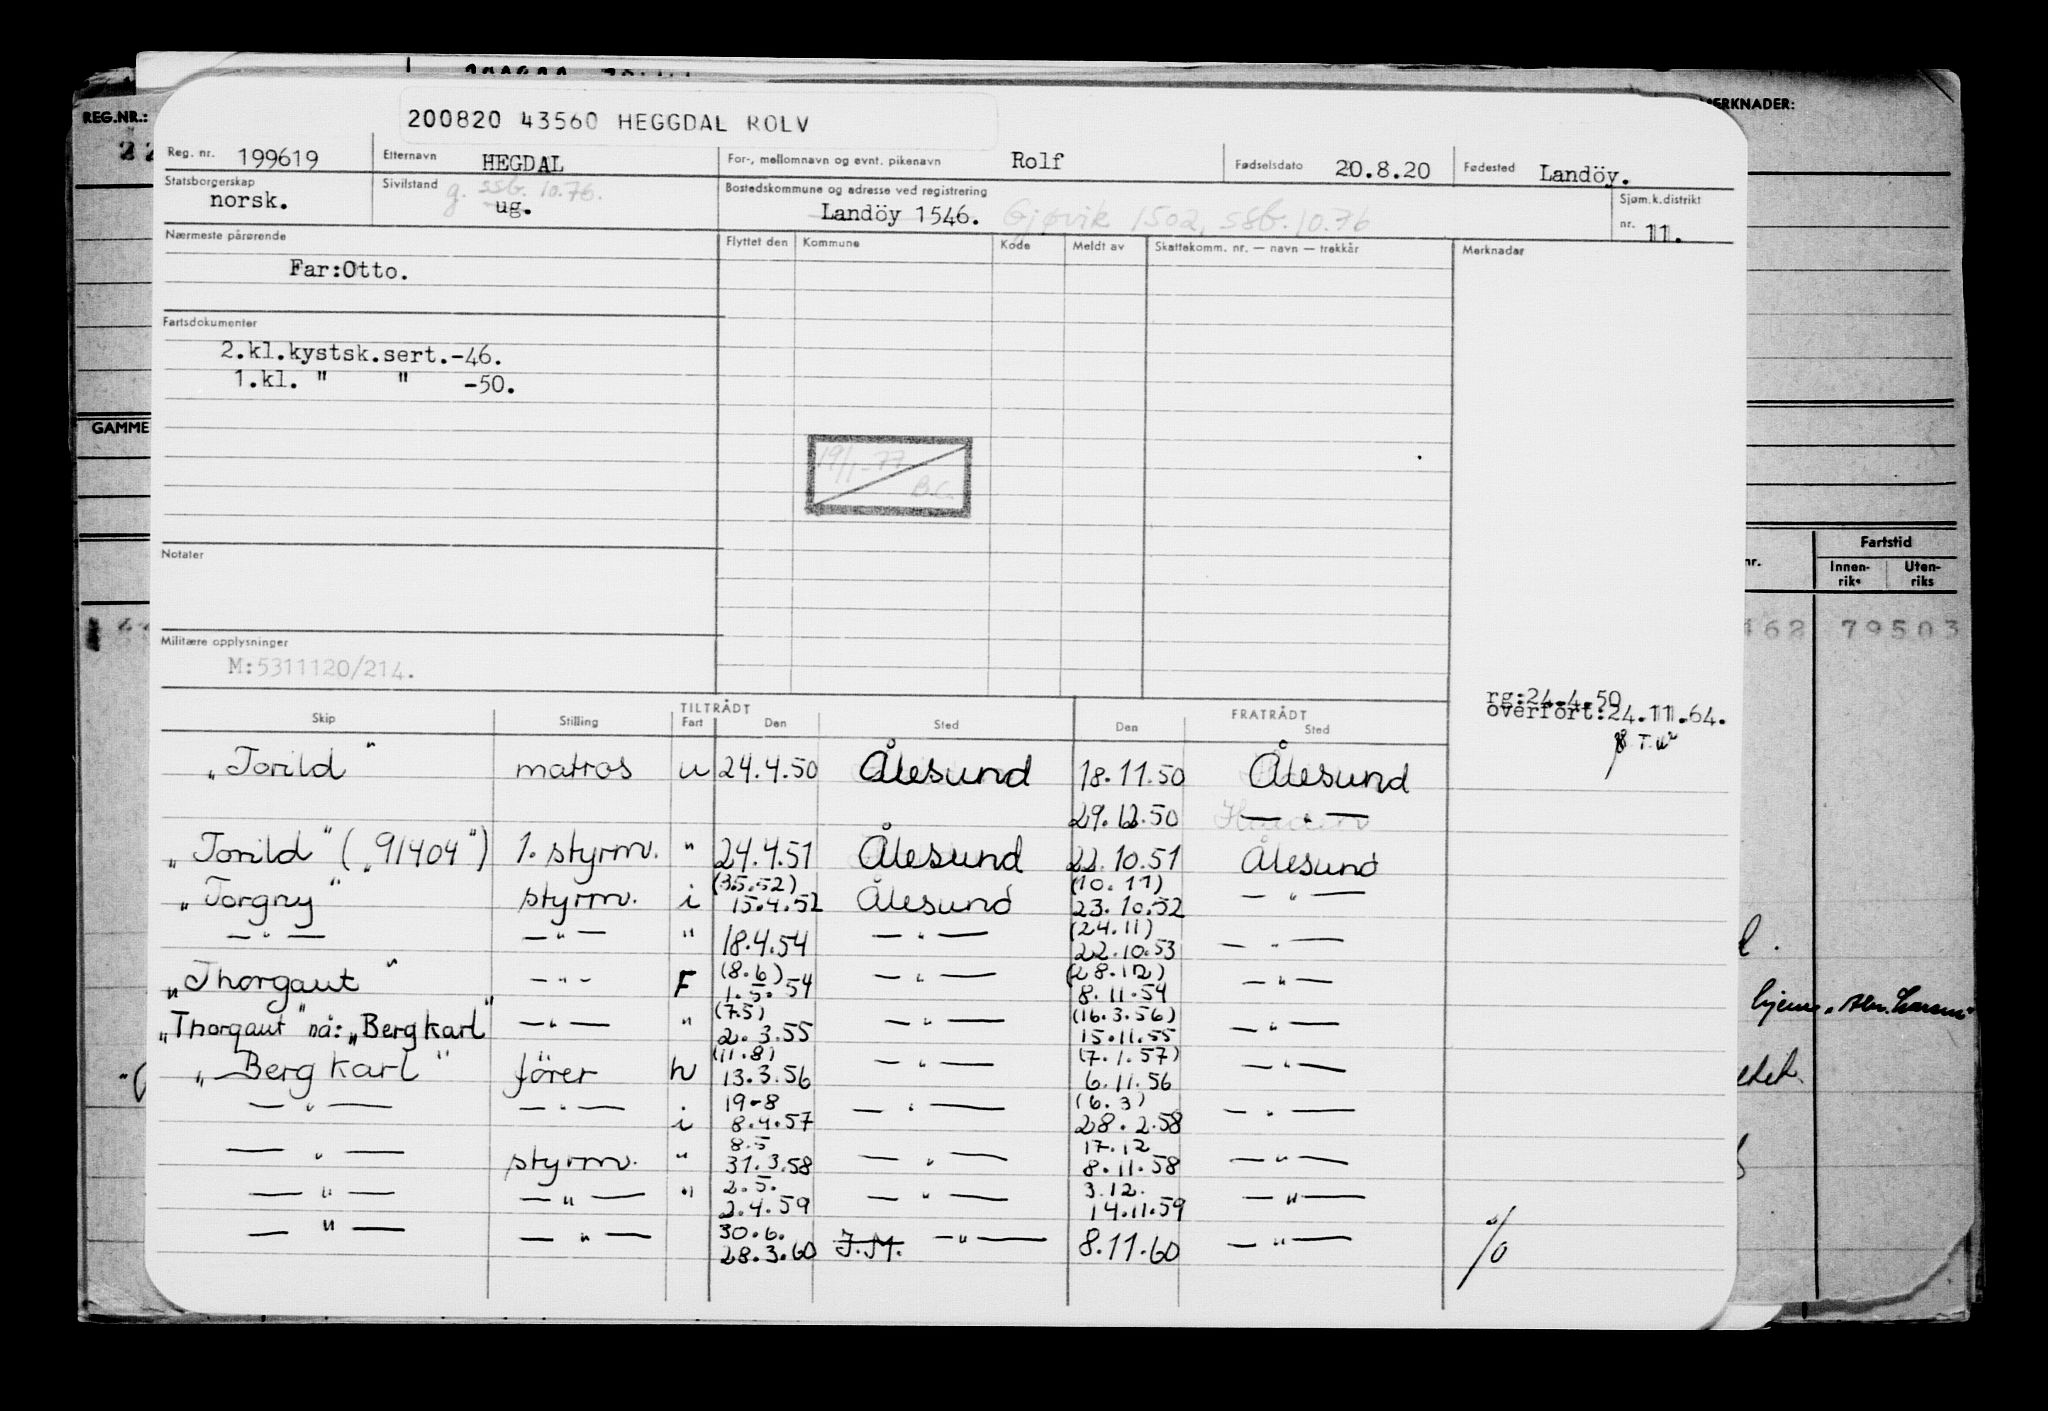 REG.NR.:
MERKNADER:
200820 43560 HEGGDAL ROLV
Reg. nr. 199619 Etternavn HEGDAL For-, mellomnavn og evnt. pikenavn Rolf Fødselsdato 20.8.20 Fødested Landöy.
Statsborgerskap norsk. Sivilstand ug. g. ssb. 10.76. Bostedskommune og adresse ved registrering Landöy 1546. Gjøvik 1502, ssb. 10.76 Sjøm.k.distrikt nr. 11.
Nærmeste pårørende Flyttet den Kommune Kode Meldt av Skattekomm. nr. — navn — trekkår Merknader
Far:Otto.
Fartsdokumenter
2.kl.kystsk.sert.-46.
1.kl. " " -50.
GAMME
19/1-77
B.C.
Notater
Fartstid
nr. Innen-riks Uten-riks
Militære opplysninger
M:5311120/214.
162 79503
rg:24.4.50
overført:24.11.64.
TILTRÅDT FRATRÅDT
Skip Stilling Fart Den Sted Den Sted
"Torild" matros u 24.4.50 Ålesund 18.11.50 Ålesund
29.12.50 — " —
"Torild" ("91404") 1. styrm. " 24.4.51 Ålesund 22.10.51 Ålesund
(3.5.52) (10.11)
"Torgny" styrm. i 15.4.52 Ålesund 23.10.52 — " —
(24.11)
— " — — " — " 18.4.54 — " — 22.10.53 — " —
(8.6) (28.12)
"Thorgaut" — " — F 1.5.54 — " — 8.11.54 — " —
(7.5) (16.3.56)
"Thorgaut" nå: "Bergkarl" — " — " 2.3.55 — " — 15.11.55 — " —
(11.8) (7.1.57)
"Bergkarl" förer h 13.3.56 — " — 6.11.56 — " —
19-8 (6.3)
— " — — " — i 8.4.57 — " — 28.2.58 — " —
8.5 17.12
— " — styrm. " 31.3.58 — " — 8.11.58 — " —
2.5. 3.12.
— " — — " — " 2.4.59 — " — 14.11.59 — " —
30.6.
— " — — " — 28.3.60 J.M. — " — 8.11.60 — " —